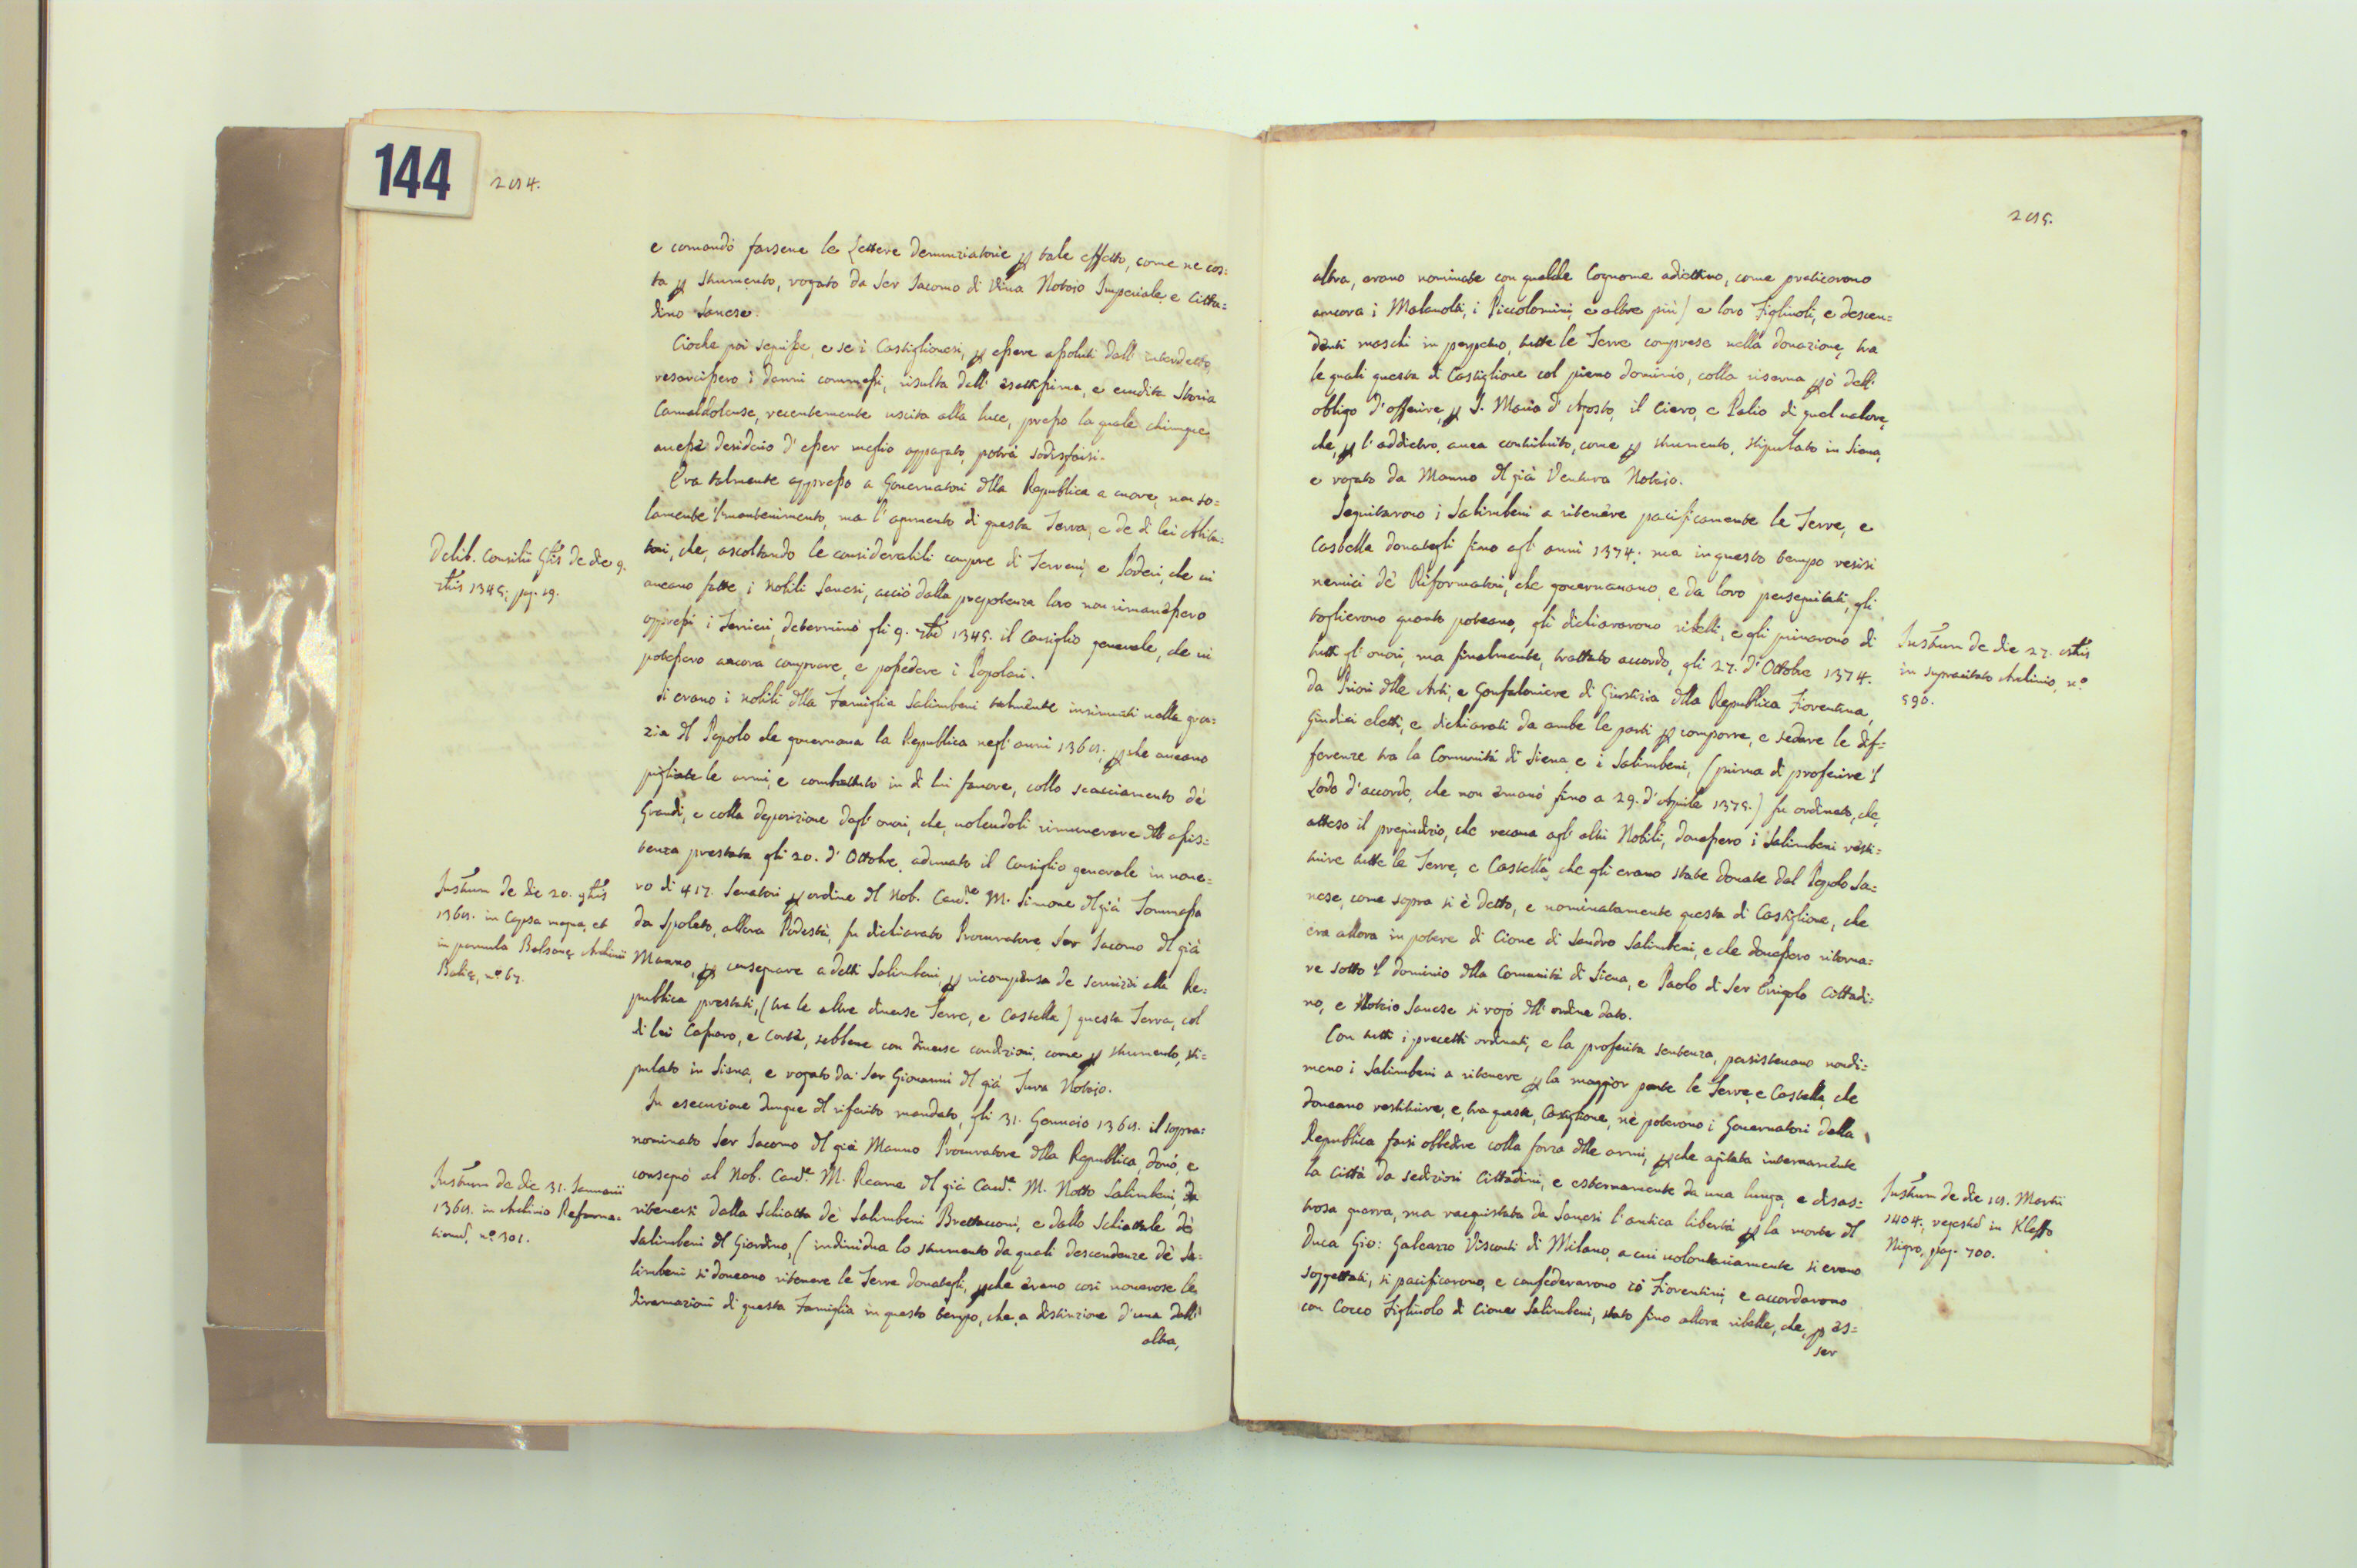 144
284.
e comandò farsene le Lettere denunziatorie p tale effetto, come ne cos=
ta p strumento, rogato da Ser Iacomo di Vina Notaio Imperiale, e Citta=
dino Sanese.
Cioche poi seguisse, e se i Castiglionesi, p essere assoluti dall' interdetto,
resarcissero i danni commessi, risulta dall' esattissima, e erudita Storia
Camaldolense, recentemente uscita alla luce, presso la quale chiunque
avesse desiderio d' esser meglio appagato, potrà sodisfarsi.
Era talmente appresso a Governatori dlla Republica a cuore, non so=
lamente 'l mantenimento, ma l' aumento di questa Terra, e de di lei Abita=
tori, che, ascoltando le considerabili compre di Terreni, e Poderi, che vi
aveano fatte i Nobili Sanesi, acciò dalla prepotenza loro non rimanessero
oppressi i Terrieri, determinò gli 9. 1345. il Consiglio generale, che vi
potessero ancora comprare, e possedere i Popolari.
Delib. Consilii Glis de die 9.
1345. pag. 19.
Si erano i Nobili dlla Famiglia Salimbeni talmente insinuati nella gra=
zia dl Popolo che governava la Republica negl' anni 1368. p che aveano
pigliate le armi, e combattuto in di lui favore, collo scacciamento de'
Grandi, e colla deposizione dagl' onori, che, volendoli rimunerare dll' assis=
tenza prestata gli 20. d' Ottobre, adunato il Consiglio generale in nume=
ro di 417. Senatori p ordine dl Nob. Cav.e M. Simone dl già Tommasa
da Spoleto, allora Podestà, fu dichiarato Procuratore Ser Iacomo dl già
Manno, p consegnare a detti Salimbeni, p ricompensa de servizii alla Re=
publica prestati, (tra le altre diverse Terre, e Castella) questa Terra, col
di lei Cassaro, e Corte, sebbene con diverse condizioni, come p strumento, sti=
pulato in Siena, e rogato da Ser Giovanni dl già Tura Notaio.
Instrum de die 20.
1368. in Capsa magna, et
in parvula Balzanę Archivii
Balię, n.o 67.
In esecuzione dunque dl riferito mandato, gli 31. Gennaio 1368. il sopra=
nominato Ser Iacomo dl già Manno Procuratore dlla Republica, donò, e
consegnò al Nob. Cav.e M. Reame dl già Cav.e M. Notto Salimbeni, da
ritenersi dalla Schiatta de' Salimbeni Brettacconi, e dallo Schiattale de'
Salimbeni dl Giardino, (individua lo strumento da quali descendenze de' Sa=
limbeni si doveano ritenere le Terre donategli, p che erano così numerose le
diramazioni di questa Famiglia in questo tempo, che, a distinzione d' una dall'
altra,
Instrum de die 31. Ianuarii
1368. in Archivio Reforma=
tionu, n.o 301.
285.
altra, erano nominate con qualche Cognome adiettivo, come praticarono
ancora i Malavolti, i Piccolomini, e altre più) e loro Figliuoli, e descen=
denti maschi in perpetuo, tutte le Terre comprese nella donazione, tra
le quali questa di Castiglione col pieno dominio, colla riserva pò dell'
obligo d' offerire, p S. Maria d' Agosto, il Ciero, e Palio di quel valore,
che, p l' addietro, avea contribuito, come p strumento, stipulato in Siena,
e rogato da Manno dl già Ventura Notaio.
Seguitarono i Salimbeni a ritenere pacificamente le Terre, e
Castella donategli fino agl' anni 1374. ma in questo tempo resisi
nemici de' Riformatori, che governavano, e da loro perseguitati, gli
toglierono quanto poteano, gli dichiararono ribelli, e gli privarono di
tutti gl' onori, ma finalmente, trattato accordo, gli 27. d' Ottobre 1374.
da Priori dlle Arti, e Gonfaloniere di Giustizia dlla Republica Fiorentina,
Giudici eletti, e dichiarati da ambe le parti p comporre, e sedare le dif=
ferenze tra la Comunità di Siena, e i Salimbeni, (prima di proferire 'l
Lodo d' accordo, che non emanò fino a 29. d' Aprile 1375.) fu ordinato, che,
atteso il pregiudizio, che recava agl' altri Nobili, dovessero i Salimbeni resti=
tuire tutte le Terre, e Castella, che gli erano state donate dal Popolo Sa=
nese, come sopra si è detto, e nominatamente questa di Castiglione, che
era allora in potere di Cione di Sandro Salimbeni, e che dovessero ritorna=
re sotto 'l dominio dlla Comunità di Siena, e Paolo di Ser Cittadi=
no, e Notaio Sanese si rogò dll' ordine dato.
Instrum de die 27. 8bris
in supracitato Archivio, n.o
590.
Con tutti i precetti ordinati, e la proferita sentenza, persistevano nondi=
meno i Salimbeni a ritenere p la maggior parte le Terre, e Castella, che
doveano restituire, e, tra queste, Castiglione, nè poterono i Governatori della
Republica farsi obbedire colla forza dlle armi, p che agitata internamente
la Città da sediziosi Cittadini, e esternamente da una lunga, e disas=
trosa guerra, ma racquistata da Sanesi l' antica libertà p la morte dl
Duca Gio: Galeazzo Visconti di Milano, a cui volontariamente si erano
soggettati, si pacificarono, e confederarono co' Fiorentini, e accordarono
con Cocco Figliuolo di Cione Salimbeni, stato fino allora ribelle, che, p es=
ser
Instrum de die 18. Martii
1404. regestu in Kleffo
Nigro, pag. 700.